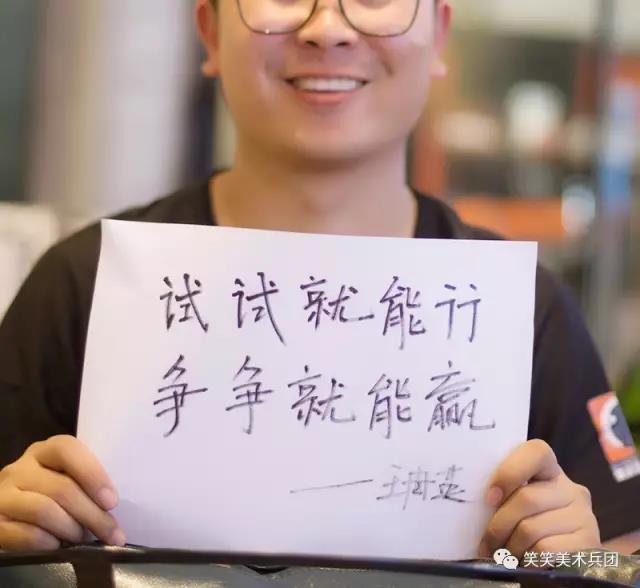 试试就能行
争争就能赢
笑笑美术兵团